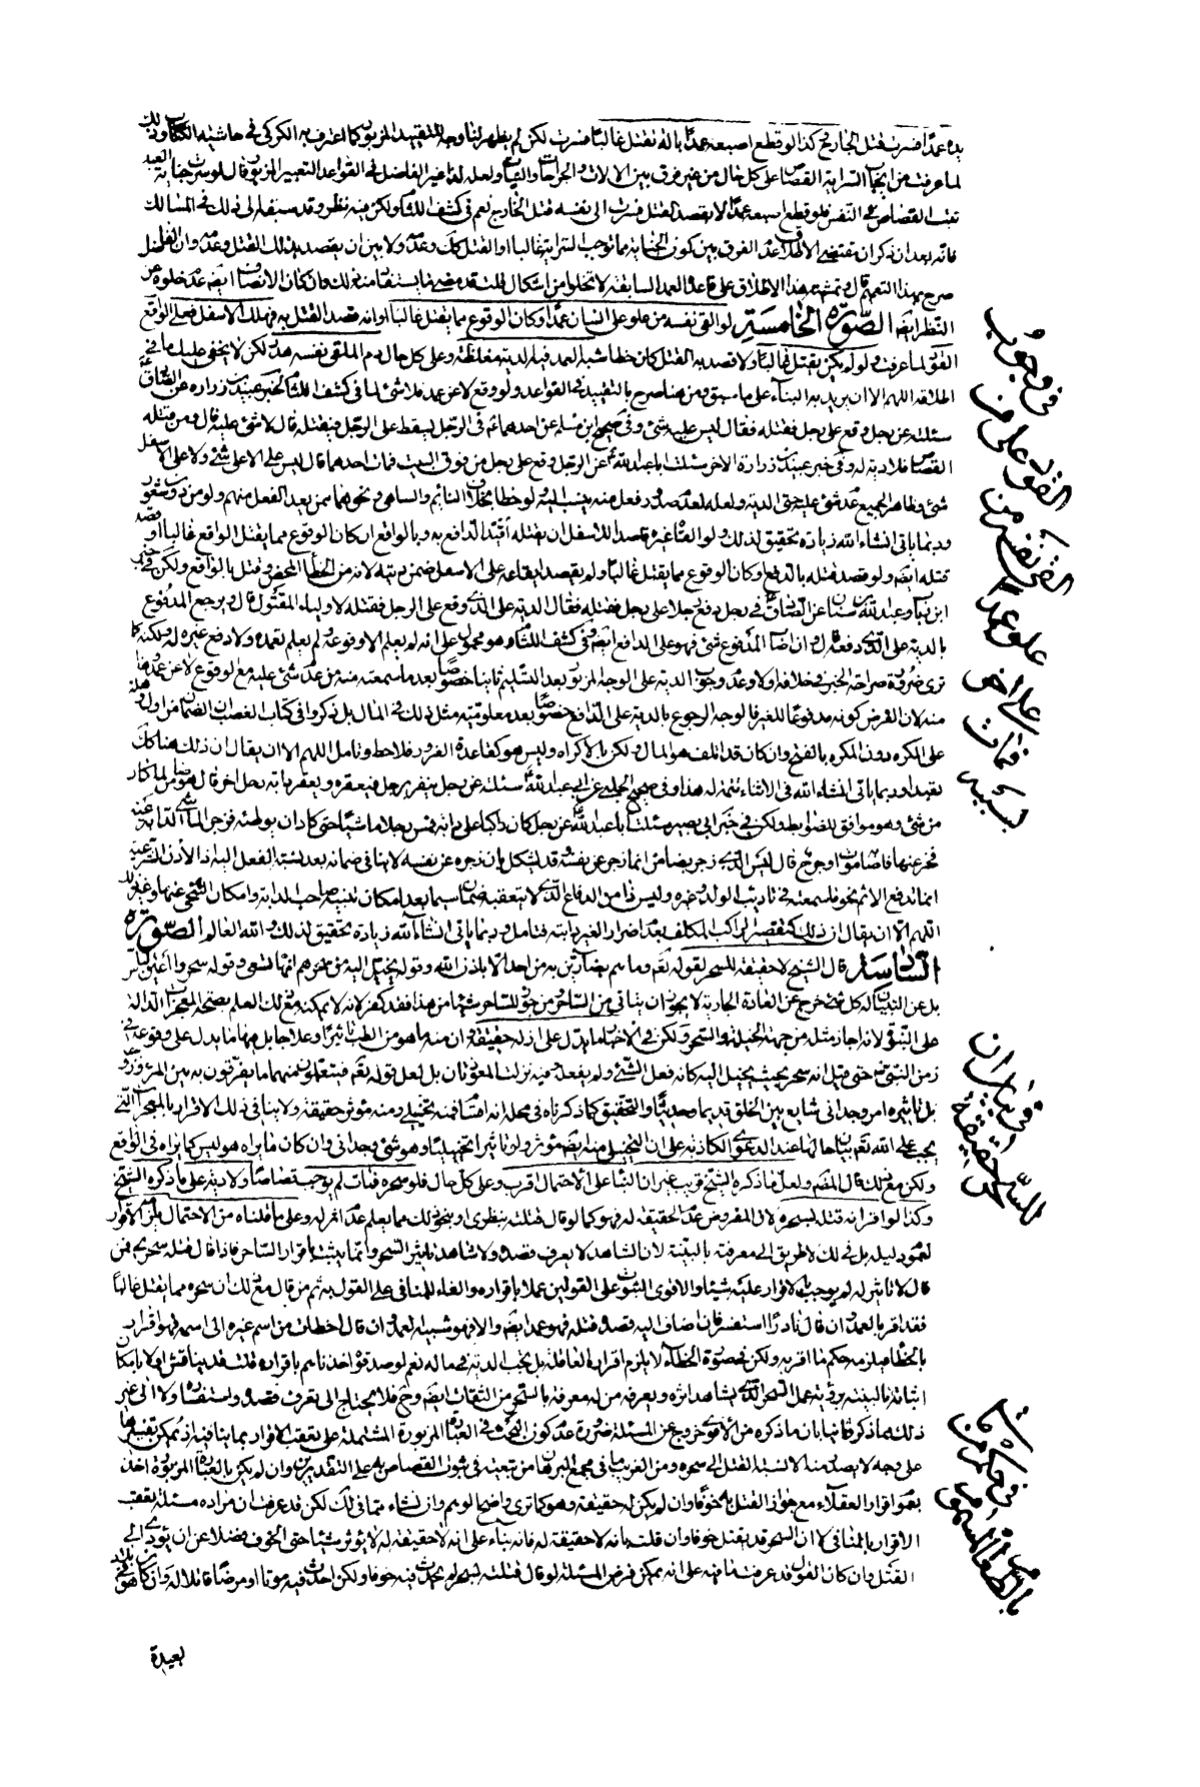 يده عمدا فسرت قتل الجارح وكذا لو قطع اصبعه عمدا بالة تقتل غالبا فسرت لكن لم يظهر لنا وجه للتقييد المزبور كما اعترف به الكركي في حاشية الكتاب وذلك
لما عرفت من ايجاب السراية القصاص على كل حال من غير فرق بين الالات والجراحات والنيات ولعله لذا غير الفاضل في القواعد التعبير المزبور قال لو سرت جناية العمد
ثبت القصاص في النفس فلو قطع اصبعه عمدا لا بقصد القتل فسرت الى نفسه قتل الجارح نعم في كشف اللثام ولكن فيه نظر وقد سبقه الى ذلك في المسالك
فانه بعد ان ذكر ان مقتضى الاطلاق عدم الفرق بين كون الجناية مما توجب السراية غالبا او القتل كك وعدمه ولا بين ان يقصد بذلك القتل وعدمه وان الفاضل
صرح بهذا التعميم قال وتمشية هذا الاطلاق على قاعدة العمد السابقة لا تخلوا من اشكال قلت قد مضى ما يستفاد منه ذلك فان كان الانصاف ايضا عدم خلوه عن
النظر ايضا الصورة الخامسة لو القى نفسه من علو على انسان عمدا وكان الوقوع مما يقتل غالبا او انه قصد القتل به فهلك الاسفل فعلى الواقع
القود لما عرفت ولو لم يكن يقتل غالبا ولا قصد به القتل كان خطأ شبيه العمد فيه الدية مغلظة وعلى كل حال دم الملقي نفسه هدر لكن لا يخفى عليك ما في
اطلاقه اللهم الا ان يريد به البناء على ما سبق ومن هنا صرح بالتقييد في القواعد ولو وقع لا عن عمد فلا شئ كما في كشف اللثام لخبر عبيد بن زرارة عن الصادق
سئلته عن رجل وقع على رجل فقتله فقال ليس عليه شئ وفي صحيح ابن مسلم عن احدهما في الرجل يسقط على الرجل فيقتله قال لا شئ عليه قال ومن قتله
القصاص فلا دية له وفي خبر عبيد بن زرارة الاخر سئلت ابا عبد الله عن الرجل وقع على رجل من فوق البيت فمات احدهما قال ليس على الاعلى شئ ولا على الاسفل
شئ وظاهر الجميع عدم شئ عليه حتى الدية ولعله لعدم صدور فعل منه ينسب اليه ولو خطأ بخلاف النائم والساهي ونحوهما ممن يعد الفعل منهم ولو من دون شعور
وربما ياتي انشاء الله زيادة تحقيق لذلك ولو القاه غيره قاصدا للاسفل ان يقتله اقيد الدافع به وبالواقع ان كان الوقوع مما يقتل الواقع غالبا او قصد
قتله ايضا ولو قصد قتله بالدفع او كان الوقوع مما يقتل غالبا ولم يقصد ايقاعه على الاسفل ضمن ديته لانه من الخطأ المحض وقتل بالواقع ولكن في خبر
ابن رئاب وعبد الله بن سنان عن الصادق في رجل دفع رجلا على رجل فقتله فقال الدية على الذي وقع على الرجل فقتله لاولياء المقتول قال ويرجع المدفوع
بالدية على الذي دفعه قال وان اصاب المدفوع شئ فهو على الدافع ايضا وفي كشف اللثام وهو محمول على انه لم يعلم الا وقوعه ولم يعلم تعمده ولا دفع غيره له ولكنه كما
ترى ضرورة صراحة الخبر في خلافه اولا وعدم وجوب الدية على الوجه المزبور بعد التسليم ثانيا خصوصا بعد ما سمعته منه من عدم شئ عليه مع الوقوع لا عن عمد
منه لان الفرض كونه مدفوعا للغير فالوجه الرجوع بالدية على الدافع خصوصا بعد معلومية مثل ذلك في المال بل ذكروا في كتاب الغصب ان الضمان من اول وهلة
على المكره دون المكره بالفتح وان كان قد اتلف هو المال ولكن بالاكراه وليس هو كقاعدة الغرور فلاحظ وتامل اللهم الا ان يقال ان ذلك هنا كك
تعبدا وربما ياتي انشاء الله في الاثناء تتمة له هذا وفي صحيح الحلبي عن ابي عبد الله سئلته عن رجل ينفر برجل فيعقره ويعقر دابته رجل اخر قال هو ضامن لما كان
من شئ وهو موافق للضوابط ولكن في خبر ابي بصير سئلت ابا عبد الله عن رجل كان راكبا على دابة فغشي رجلا ماشيا حتى كاد ان يوطئه فزجر الماشي الدابة عنه
فخر عنها فاصابه موت او جرح قال ليس الذي زجر بضامن انما زجر عن نفسه وقد يشكل بان زجره عن نفسه لا ينافي ضمانه بعد نسبة الفعل اليه اذ الاذن الشرعية
انما تدفع الاثم نحو ما سمعته في تاديب الولد وغيره وليس ذا من الدفاع الذي لا يتعقبه ضمان سيما بعد امكان تنبيه صاحب الدابة وامكان التنحي عنها وغير ذلك
اللهم الا ان يقال ان ذلك كتقصير الراكب المكلف بعدم اضرار الغير بدابته فتامل وربما ياتي انشاء الله زيادة تحقيق لذلك والله العالم الصورة
السادسة قال الشيخ لا حقيقة للسحر لقوله تعم وما هم بضارين به من احد الا باذن الله وقوله يخيل اليه من سحرهم انها تسعى وقوله سحروا اعين الناس
بل عن التبيان كل شئ خرج عن العادة الجارية لا يجوز ان يتاتى من الساحر ومن جوز للساحر شيئا من هذا فقد كفر لانه لا يمكنه مع ذلك العلم بصحة المعجزات الدالة
على النبوة لانه اجاز مثله من جهة الحيلة والسحر ولكن في الاخبار ما يدل على ان له حقيقة وان منه ما هو من الطب تاثيرا وعلاجا بل فيها ما يدل على وقوعه في
زمن النبي ص حتى قيل انه سحر بحيث يخيل اليه كانه فعل الشئ ولم يفعله وفيه نزلت المعوذتان بل لعل قوله تعم فيتعلمون منهما ما يفرقون به بين المرء وزوجه
بل تاثيره امر وجداني شايع بين الخلق قديما وحديثا والتحقيق كما ذكرناه في محله انه اقسام فمنه تخييل ومنه مؤثر حقيقة ولا ينافي ذلك الاقرار بالمعجزات التي
يجب على الله تعم بيان حالها عند الدعوى الكاذبة على ان التخييل منه ايضا مؤثر ولو تاثيرا تخييليا وهو شئ وجداني وان كان ما يراه هو ليس كما يراه في الواقع
ولكن مع ذلك قال المصنف ولعل ما ذكره الشيخ قريب غير ان البناء على الاحتمال اقرب وعلى كل حال فلو سحره فمات لم يوجب قصاصا ولا دية على ما ذكره الشيخ
وكذا لو اقر انه قتله بسحره لان المفروض عدم الحقيقة له فهو كما لو قال قتلته بنظري او نحو ذلك مما يعلم عدم اثر له وعلى ما قلناه من الاحتمال يلزمه الاقرار
لعموم دليله بل في ذلك لا طريق الى معرفته بالبينة لان الشاهد لا يعرف قصده ولا شاهد تاثير السحر وانما يثبت باقرار الساحر فاذا قال قتله سحري فمن
قال لا تاثير له لم يوجب بالاقرار عليه شيئا والاقوى الثبوت على القولين عملا باقراره والغاء للمنافي على القول به ثم من قال مع ذلك ان سحره مما يقتل غالبا
فقد اقر بالعمد وان قال نادرا استفسر فان اضاف اليه قصده قتله فهو عمد ايضا والا فهو شبيه العمد وان قال اخطات من اسم غيره الى اسمه فهو اقرار
بالخطأ فيلزمه حكم ما اقر به ولكن في صورة الخطأ لا يلزم اقراره العاقلة بل تجب الدية في ماله نعم لو صدقوه اخذناهم باقرارهم قلت قد يناقش اولا بامكان
اثباته بالبينة برؤية عمل السحر الذي يشاهد اثره ويعرفه من له معرفة بالسحر من الثقات ايضا وح فلا يحتاج الى تعرف قصده ويستفسر اولا الى غير
ذلك مما ذكر وثانيا بان ما ذكره من الاقوى خروج عن المسئلة ضرورة عدم كون البحث في العبارة المزبورة المشتملة على تعقب الاقرار بما ينافيه اذ يمكن تفسيرها
على وجه لا يصدر منه الا نسبة القتل الى سحره ومن الغريب ما في مجمع البرهان من تبعيته في ثبوت القصاص به على التقديرين وان لم يكن بالعبارة المزبورة اخذا
بعموم اقرار العقلاء مع جواز القتل به خوفا وان لم يكن له حقيقة وهو كما ترى واضح الوهم وان نشاء مما في ذلك لكن قد عرفت ان مراده مسئلة تعقب
الاقرار بالمنافي لا ان السحر قد يقتل خوفا وان قلت بانه لا حقيقة له فانه بناء على انه لا حقيقة له لا يؤثر شيئا حتى الخوف فضلا عن ان يؤدي الى
القتل وان كان القول قد عرفت ما فيه على انه يمكن فرض المسئلة لو قال قتلته بسحر لم يحدث فيه خوفا ولكن احدث فيه موتا او مرضا قاتلا له وان كان هو في بلاد
بعيدة
في وجوب
القود على من
القى نفسه من
علو عمدا
على اخر
فمات
بسببه
في بيان ان
للسحر حقيقة
في حكم من مات
بالطعام المسموم